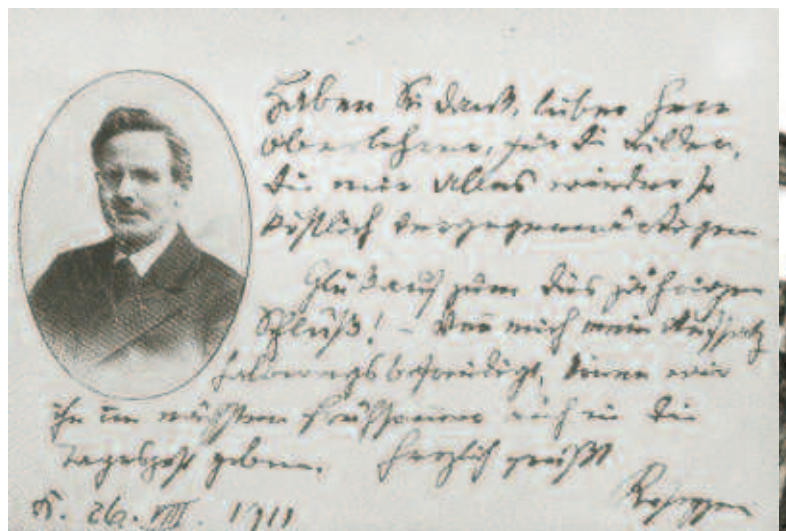 Haben Sie Dank, lieber Herr
Oberlehrer, für die Bilder,
die mir alles wieder so
köstlich vergegenwärtigen
Glückauf zum diesjährigen
Schluß! – mich mein Aufsatz
halbwegs befriedigt, wir
ihn im nächsten Frühsommer auch in die
Tagespost geben. Herzlich grüßt
Rosegger
26. VIII. 1911